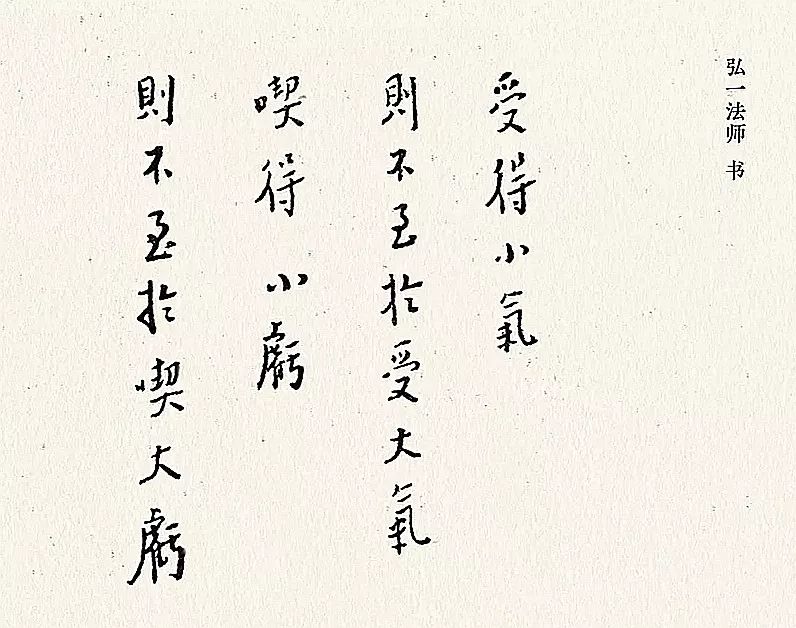 弘一法师 书
受得小氣
則不至於受大氣
喫得小虧
則不至於喫大虧